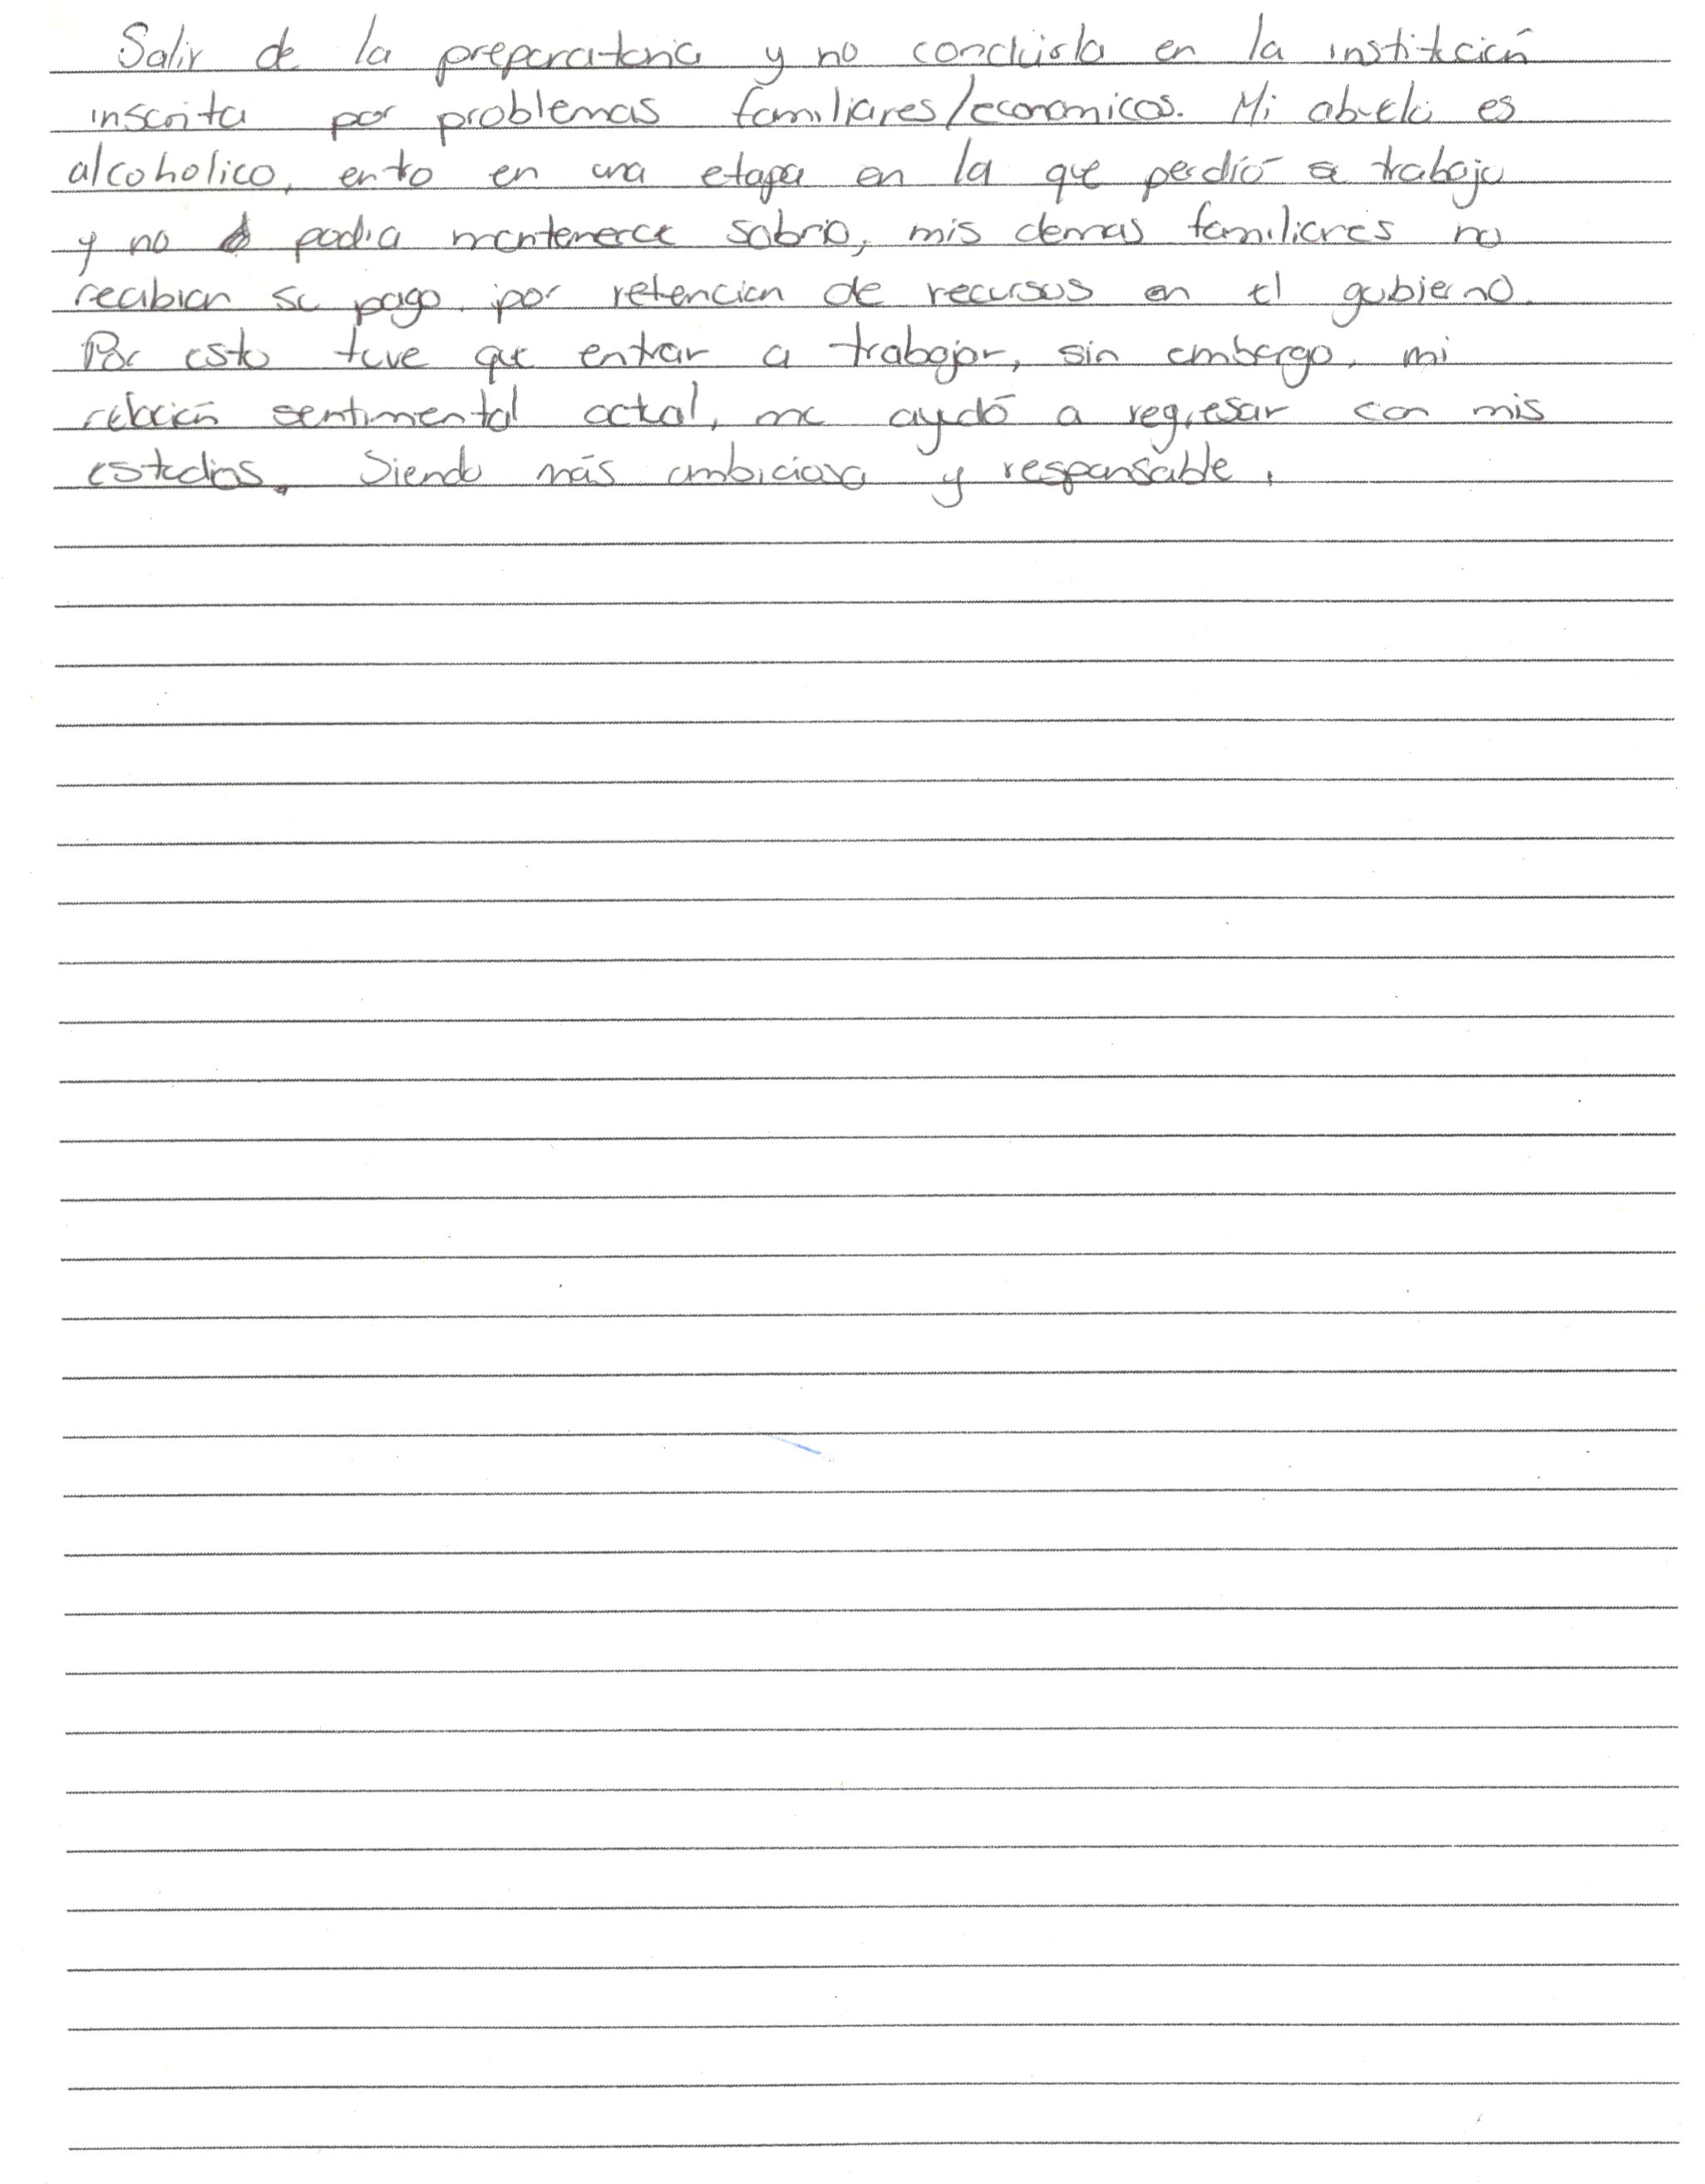 Salir de la preparatoria y no concluirla en la institución
inscrita por problemas familiares/economicos. Mi abuelo es
alcoholico, entro en una etapa en la que perdió su trabajo
y no podia mantenerce sobrio, mis demas familiares no
recibian su pago por retencion de recursos en el gobierno.
Por esto tuve que entrar a trabajar, sin embargo, mi
relación sentimental actual, me ayudó a regresar con mis
estudios. Siendo más ambiciosa y responsable.